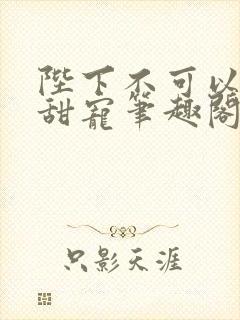 陛下不可以
甜寵筆趣閣
只影天涯